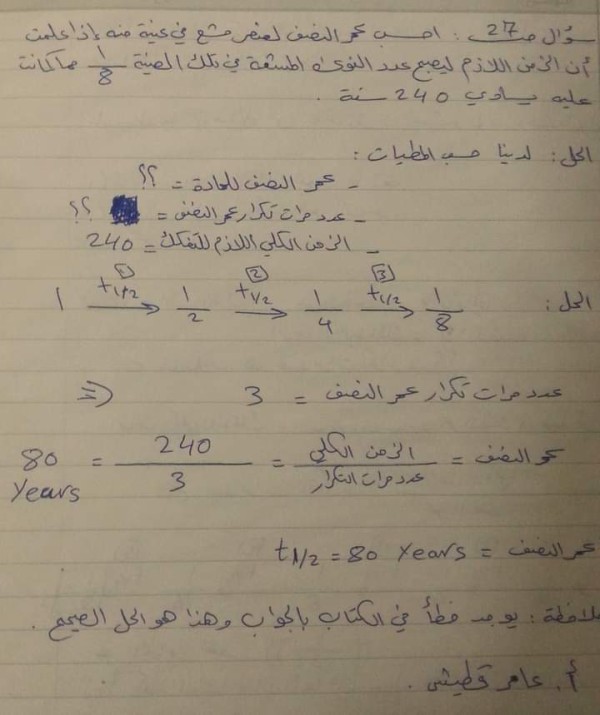 سؤال صـ 27 : احسب عمر النصف لعنصر مشع في عينة منه إذا علمت
أن الزمن اللازم ليصبح عدد النوى المشعة في تلك العينة 1/8 مما كانت
عليه يساوي 240 سنة .
الحل : لدينا حسب المعطيات :
- عمر النصف للمادة = ؟؟
- عدد مرات تكرار عمر النصف = ؟؟
- الزمن الكلي اللازم للتفكك = 240
الحل : 1 →(t1/2) [1] 1/2 →(t1/2) [2] 1/4 →(t1/2) [3] 1/8
عدد مرات تكرار عمر النصف = 3 ⇒
عمر النصف = الزمن الكلي / عدد مرات التكرار = 240 / 3 = 80 Years
عمر النصف = t1/2 = 80 Years
ملاحظة : يوجد خطأ في الكتاب بالجواب وهذا هو الحل الصحيح .
أ . عامر قطيش .